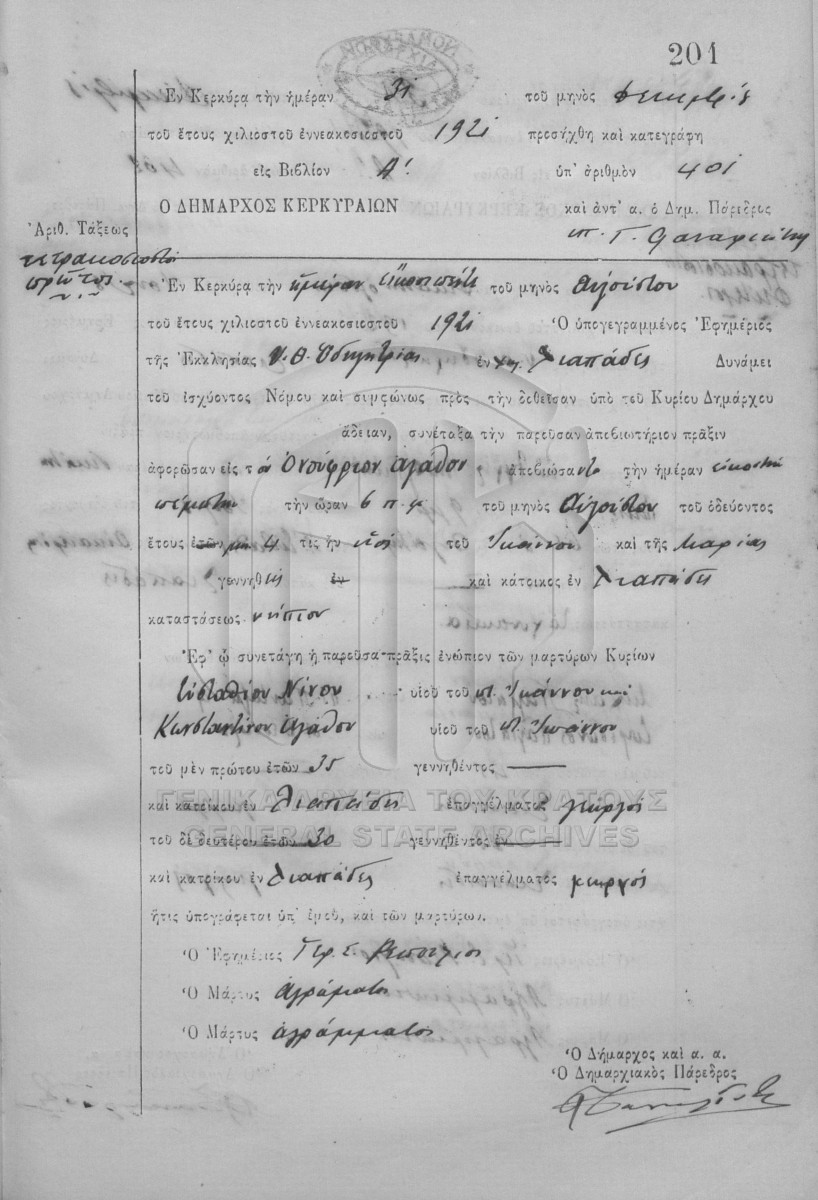 201
Ἐν Κερκύρᾳ τὴν ἡμέραν 31 τοῦ μηνὸς
τοῦ ἔτους χιλιοστοῦ ἐννεακοσιοστοῦ 1921 προσήχθη καὶ κατεγράφη
εἰς Βιβλίον Α! ὑπ' ἀριθμὸν 401
Ο ΔΗΜΑΡΧΟΣ ΚΕΡΚΥΡΑΙΩΝ καὶ ἀντ' α. ὁ Δημ. Πάρεδρος
Ἀριθ. Τάξεως
τετρακοσιοστὸς
πρῶτος
Ἐν Κερκύρᾳ τὴν ἡμέραν εἰκοσιπέντε τοῦ μηνὸς Αὐγούστου
τοῦ ἔτους χιλιοστοῦ ἐννεακοσιοστοῦ 1921 Ὁ ὑπογεγραμμένος Ἐφημέριος
τῆς Ἐκκλησίας Υ. Θ. Ὁδηγητρίας ἐν Λιαπάδες Δυνάμει
τοῦ ἰσχύοντος Νόμου καὶ συμφώνως πρὸς τὴν δοθεῖσαν ὑπὸ τοῦ Κυρίου Δημάρχου
ἄδειαν, συνέταξα τὴν παροῦσαν ἀποβιωτήριον πρᾶξιν
ἀφορῶσαν εἰς τὸν Ὀνούφριον Ἀγάθον ἀποβιώσαντα τὴν ἡμέραν εἰκοστὴν
πέμπτην τὴν ὥραν 6 π μ τοῦ μηνὸς Αὐγούστου τοῦ ὁδεύοντος
ἔτους ἐτῶν μην 4 τις ἦν υἱὸς τοῦ Ἰωάννου καὶ τῆς Μαρίας
γεννηθεὶς ἐν καὶ κάτοικος ἐν Λιαπάδες
καταστάσεως νήπιον
Ἐφ' ᾧ συνετάγη ἡ παροῦσα πρᾶξις ἐνώπιον τῶν μαρτύρων Κυρίων
Εὐσταθίου Νίνου υἱοῦ τοῦ π. Ἰωάννου καὶ
Κωνσταντίνου Ἀγάθου υἱοῦ τοῦ π. Ἰωάννου
τοῦ μὲν πρώτου ἐτῶν 35 γεννηθέντος
καὶ κατοίκου ἐν Λιαπάδες ἐπαγγέλματος γεωργοῦ
τοῦ δὲ δευτέρου ἐτῶν 30 γεννηθέντος ἐν
καὶ κατοίκου ἐν Λιαπάδες ἐπαγγέλματος γεωργοῦ
ἥτις ὑπογράφεται ὑπ' ἐμοῦ, καὶ τῶν μαρτύρων.
Ὁ Ἐφημέριος
Ὁ Μάρτυς ἀγράμματος
Ὁ Μάρτυς ἀγράμματος
Ὁ Δήμαρχος καὶ α. α.
Ὁ Δημαρχιακὸς Πάρεδρος
ΓΕΝΙΚΑ ΑΡΧΕΙΑ ΤΟΥ ΚΡΑΤΟΥΣ
GENERAL STATE ARCHIVES